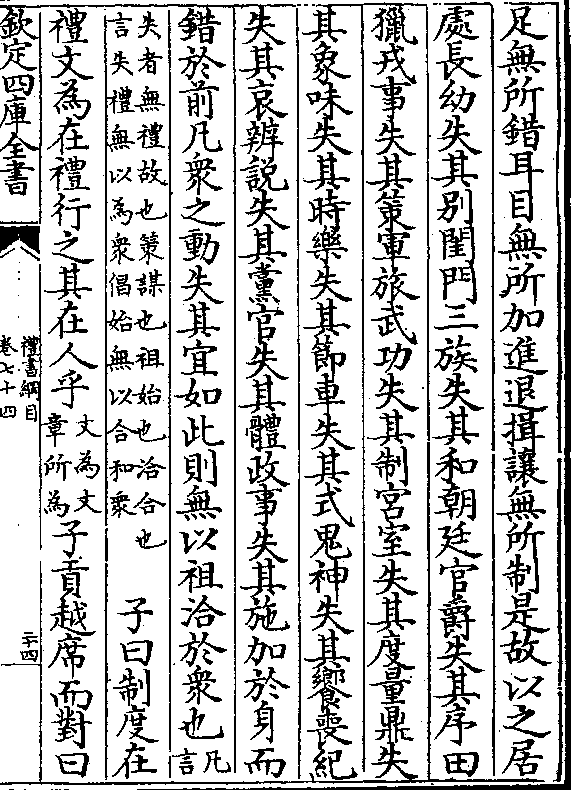 足無所錯耳目無所加進退揖讓無所制是故以之居
處長幼失其別閨門三族失其和朝廷官爵失其序田
獵戎事失其策軍旅武功失其制宮室失其度量鼎失
其象味失其時樂失其節車失其式鬼神失其饗喪紀
失其哀辨說失其黨官失其體政事失其施加於身而
錯於前凡衆之動失其宜如此則無以祖洽於衆也凡言
失者無禮故也策謀也祖始也洽合也
言失禮無以為衆倡始無以合和衆
子曰制度在
禮文為在禮行之其在人乎文為文章所為子貢越席而對曰
欽定四庫全書
禮書綱目
卷七十四
二十四